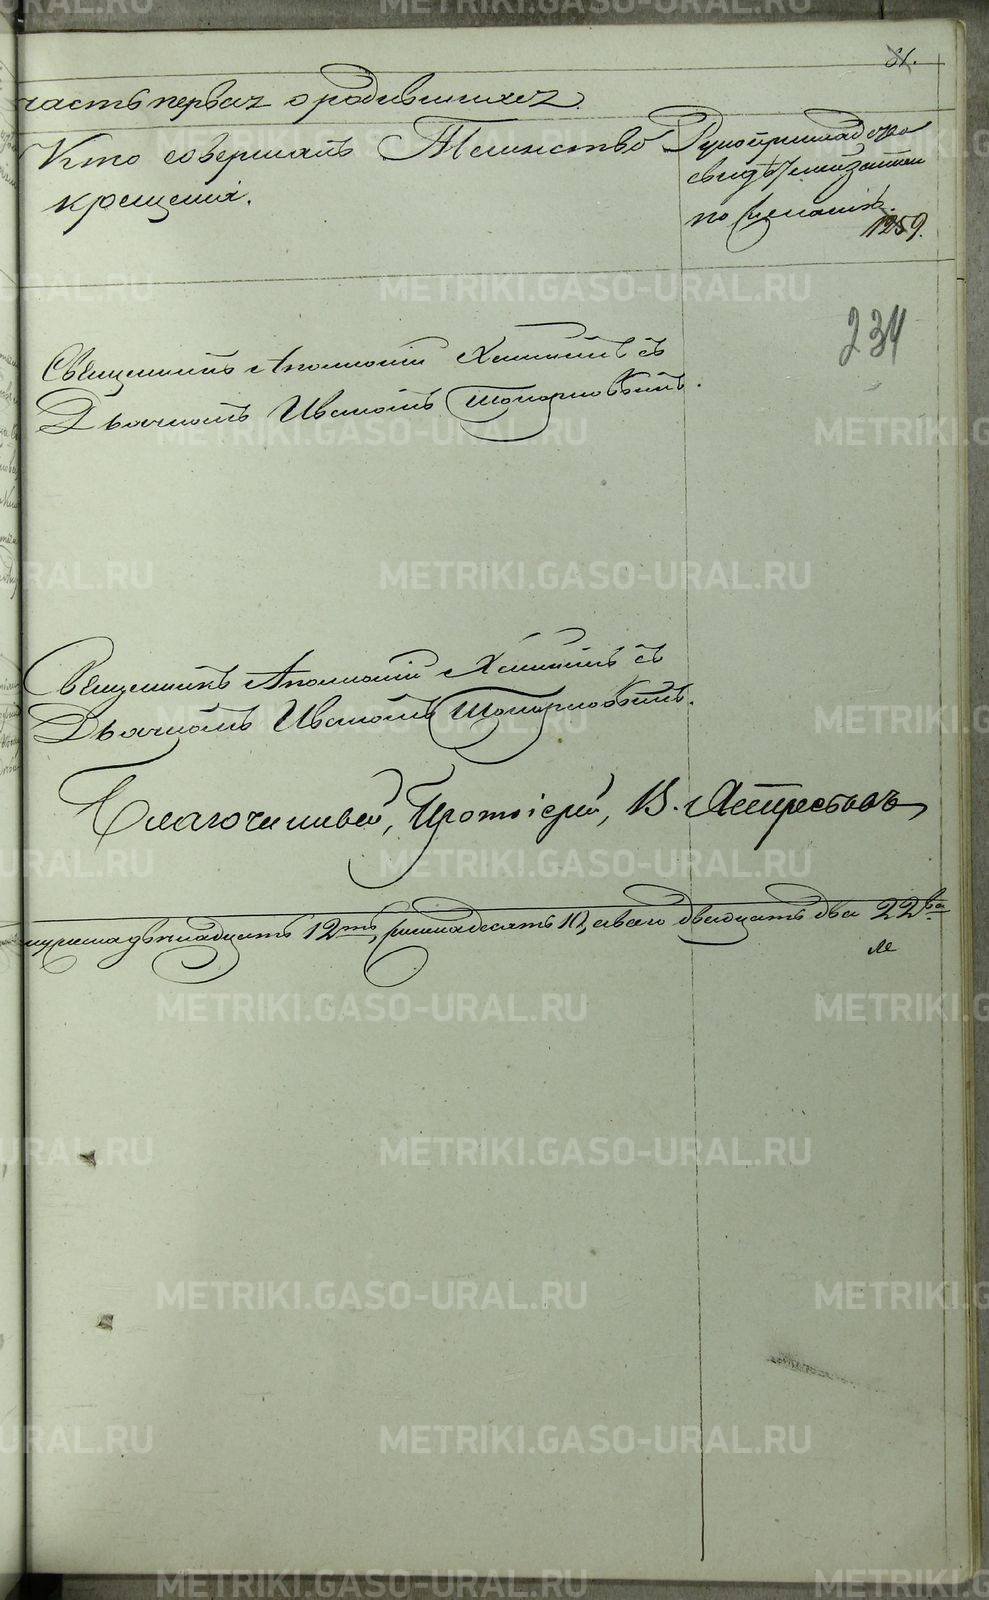 81.
часть первая о родившихся.
Кто совершалъ Таинство
крещенія.
Рукоприкладство
свидѣтелей записи
по желанію.
1259.
234
Священникъ Аполлоній Хлынинъ съ
Дьячкомъ Иваномъ Топорковымъ.
Священникъ Аполлоній Хлынинъ съ
Дьячкомъ Иваномъ Топорковымъ.
Благочинный, Протоіерей, В. Ястребовъ
мужеска двѣнадцать 12ть, женска десять 10, всего двадцать два 22ва
METRIKI.GASO-URAL.RU